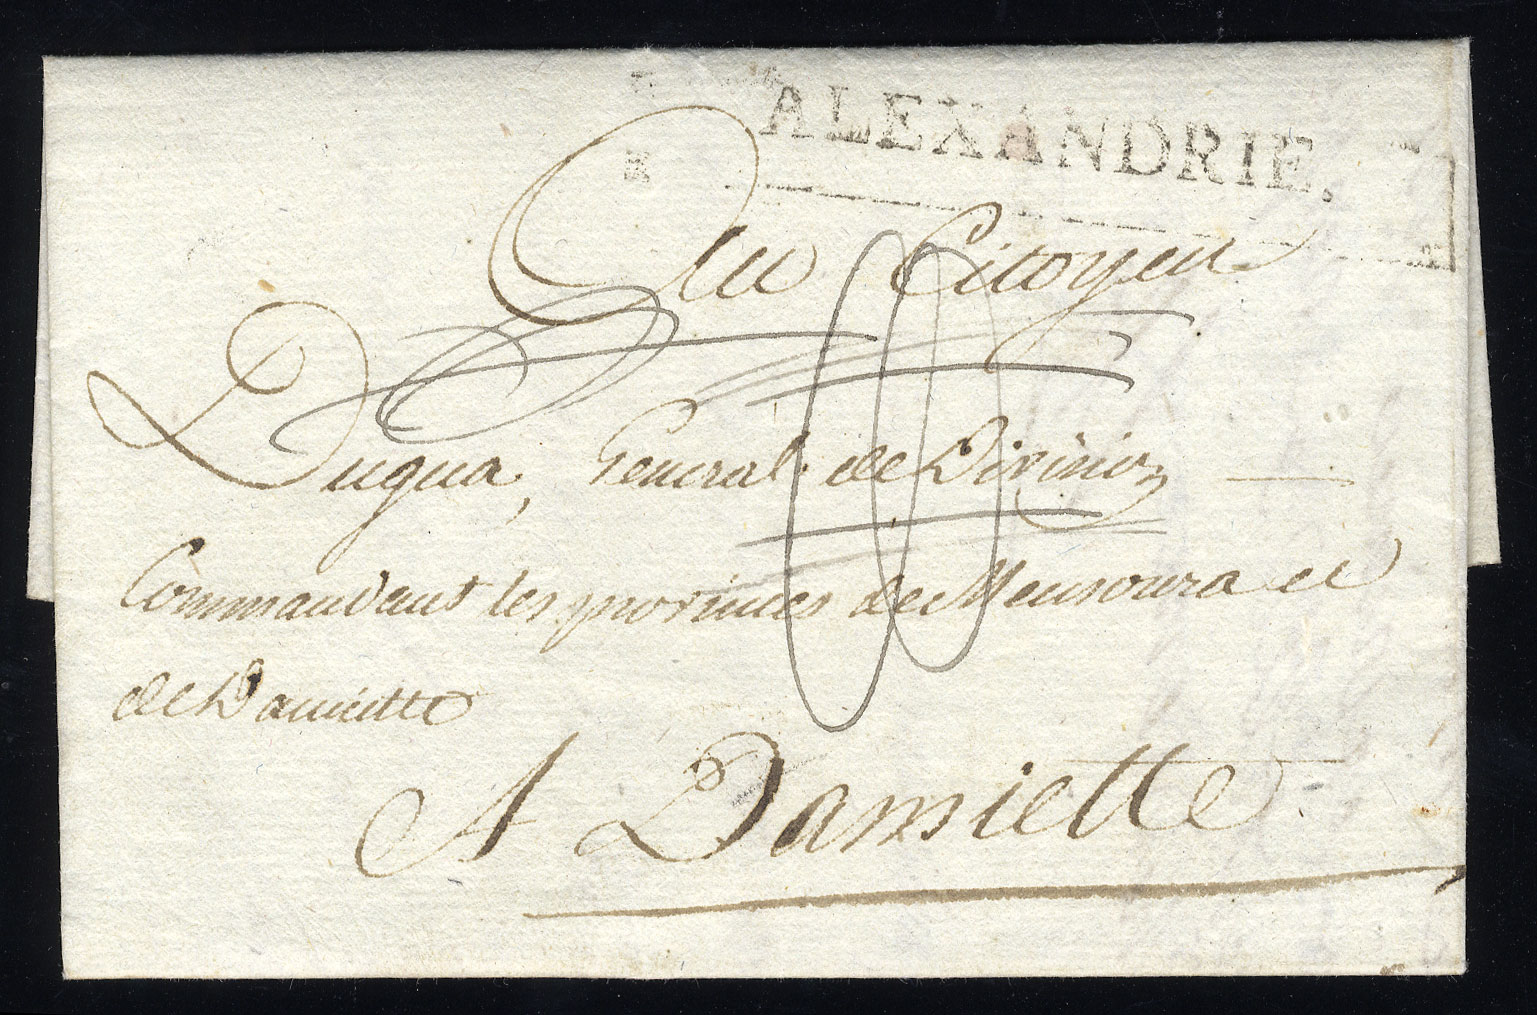 ALEXANDRIE.
Au Citoyen
Dugua, General de Division
Commandant les provinces de Mensoura et
de Damiette
A Damiette